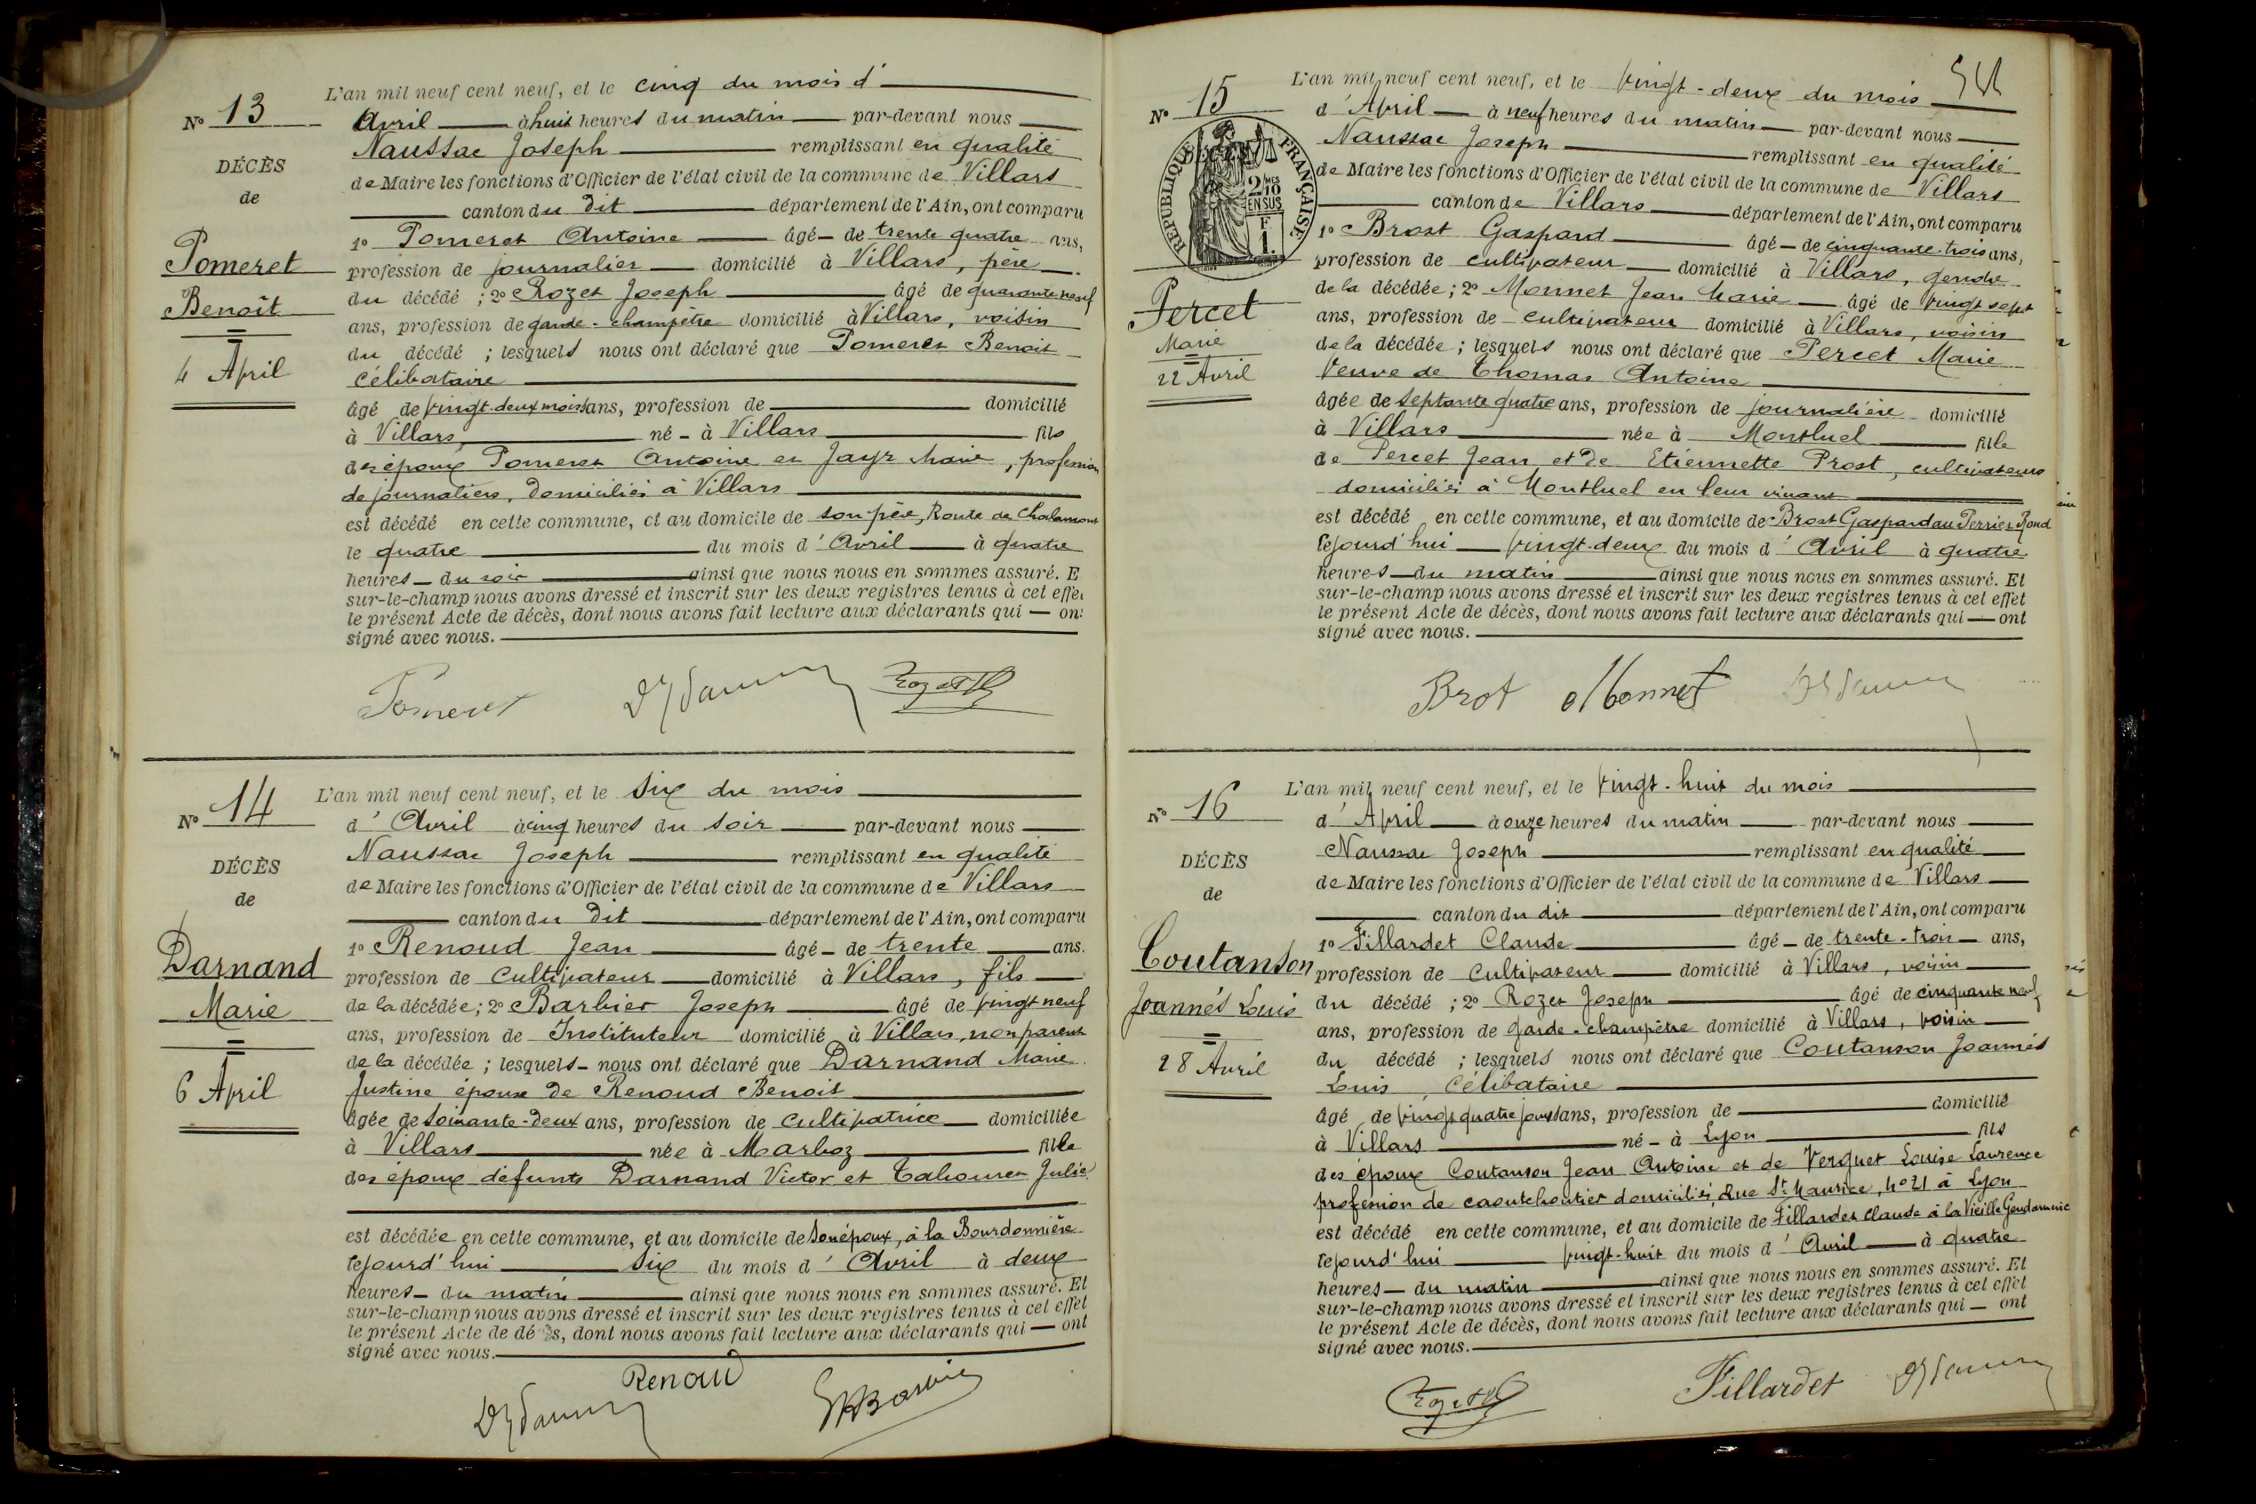 L'an mil neuf cent neuf, et le cinq du mois d'
Nº 13
Avril à huit heures du matin par-devant nous
Naussac Joseph remplissant en qualité
DÉCÈS
de Maire les fonctions d'Officier de l'état civil de la commune de Villars
de
canton du dit département de l'Ain, ont comparu
1º Pomeret Antoine âgé de trente quatre ans,
Pomeret
profession de journalier domicilié à Villars, père
du décédé ; 2º Rozet Joseph âgé de quarante neuf
Benoît
ans, profession de garde-champêtre domicilié à Villars, voisin
du décédé ; lesquels nous ont déclaré que Pomeret Benoit
4 Avril
célibataire
âgé de vingt-deux mois ans, profession de domicilié
à Villars, né à Villars fils
des époux Pomeret Antoine et Jayr Marie, profession
de journaliers, domiciliés à Villars
est décédé en cette commune, et au domicile de son père, Route de Chalamont
le quatre du mois d'Avril à quatre
heures du soir ainsi que nous nous en sommes assuré. E
sur-le-champ nous avons dressé et inscrit sur les deux registres tenus à cet effe
le présent Acte de décès, dont nous avons fait lecture aux déclarants qui on
signé avec nous.
Pomeret
L'an mil neuf cent neuf, et le six du mois
Nº 14
d'Avril à cinq heures du soir par-devant nous
Naussac Joseph remplissant en qualité
DÉCÈS
de Maire les fonctions d'Officier de l'état civil de la commune de Villars
de
canton du dit département de l'Ain, ont comparu
1º Renoud Jean âgé de trente ans.
Darnand
profession de cultivateur domicilié à Villars, fils
Marie
de la décédée ; 2º Barbier Joseph âgé de vingt neuf
ans, profession de Instituteur domicilié à Villars, non parent
de la décédée ; lesquels nous ont déclaré que Darnand Marie
6 Avril
Justine épouse de Renoud Benoit
âgée de soixante-deux ans, profession de cultivatrice domiciliée
à Villars née à Marboz fille
des époux défunts Darnand Victor et Julie
est décédée en cette commune, et au domicile de son époux, à la Bourdonnière
cejourd'hui six du mois d'Avril à deux
heures du matin ainsi que nous nous en sommes assuré. Et
sur-le-champ nous avons dressé et inscrit sur les deux registres tenus à cet effet
le présent Acte de décès, dont nous avons fait lecture aux déclarants qui ont
signé avec nous.
Renoud
Barbier
L'an mil neuf cent neuf, et le vingt-deux du mois
Nº 15
d'Avril à neuf heures du matin par-devant nous
Naussac Joseph remplissant en qualité
RÉPUBLIQUE FRANÇAISE
2/10 EN SUS
F 1.
de Maire les fonctions d'Officier de l'état civil de la commune de Villars
canton de Villars département de l'Ain, ont comparu
1º Brost Gaspard âgé de cinquante-trois ans,
profession de cultivateur domicilié à Villars, gendre
Percet
de la décédée ; 2º Monnet Jean Marie âgé de vingt sept
ans, profession de cultivateur domicilié à Villars, voisin
Marie
de la décédée ; lesquels nous ont déclaré que Percet Marie
22 Avril
Veuve de Thomas Antoine
âgée de septante quatre ans, profession de journalière domicilié
à Villars née à Montluel fille
de Percet Jean et de Etiennette Prost, cultivateurs
domiciliés à Montluel en leur vivant
est décédé en cette commune, et au domicile de Brost Gaspard au Perrier Rond
cejourd'hui vingt-deux du mois d'Avril à quatre
heures du matin ainsi que nous nous en sommes assuré. Et
sur-le-champ nous avons dressé et inscrit sur les deux registres tenus à cet effet
le présent Acte de décès, dont nous avons fait lecture aux déclarants qui ont
signé avec nous.
Brot Monnet
L'an mil neuf cent neuf, et le vingt-huit du mois
Nº 16
d'Avril à onze heures du matin par-devant nous
Naussac Joseph remplissant en qualité
DÉCÈS
de Maire les fonctions d'Officier de l'état civil de la commune de Villars
de
canton du dit département de l'Ain, ont comparu
1º Fillardet Claude âgé de trente-trois ans,
Coutanson
profession de cultivateur domicilié à Villars, voisin
Joannès Louis
du décédé ; 2º Rozet Joseph âgé de cinquante neuf
ans, profession de garde-champêtre domicilié à Villars, voisin
du décédé ; lesquels nous ont déclaré que Coutanson Joannès
28 Avril
Louis, célibataire
âgé de vingt quatre jours ans, profession de domicilié
à Villars né à Lyon fils
des époux Coutanson Jean Antoine et de Verguet Louise Laurence
profession de caoutchoutier domiciliés Rue St Maurice, nº 21 à Lyon
est décédé en cette commune, et au domicile de Fillardet Claude à la Vieille Gendarmerie
cejourd'hui vingt-huit du mois d'Avril à quatre
heures du matin ainsi que nous nous en sommes assuré. Et
sur-le-champ nous avons dressé et inscrit sur les deux registres tenus à cet effet
le présent Acte de décès, dont nous avons fait lecture aux déclarants qui ont
signé avec nous.
Fillardet